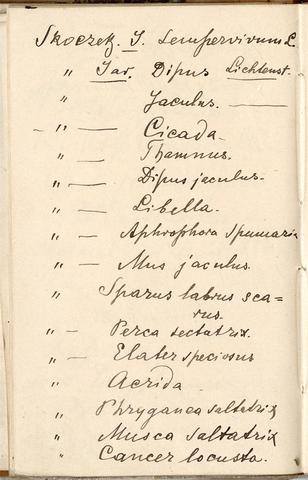 Skoczek. I. Sempervivum L.
" Jar. Dipus Lichtenst.
" Jaculus. —
– " — Cicada.
" — Thamnus.
" — Dipus jaculus.
" — Libella.
" — Aphrophora spumaria
" — Mus jaculus.
" Sparus labrus sca-
rus.
" – Perca sectatrix.
" – Elater speciosus
" Acrida.
" Phryganea saltatrix
" Musca saltatrix
" Cancer locusta.